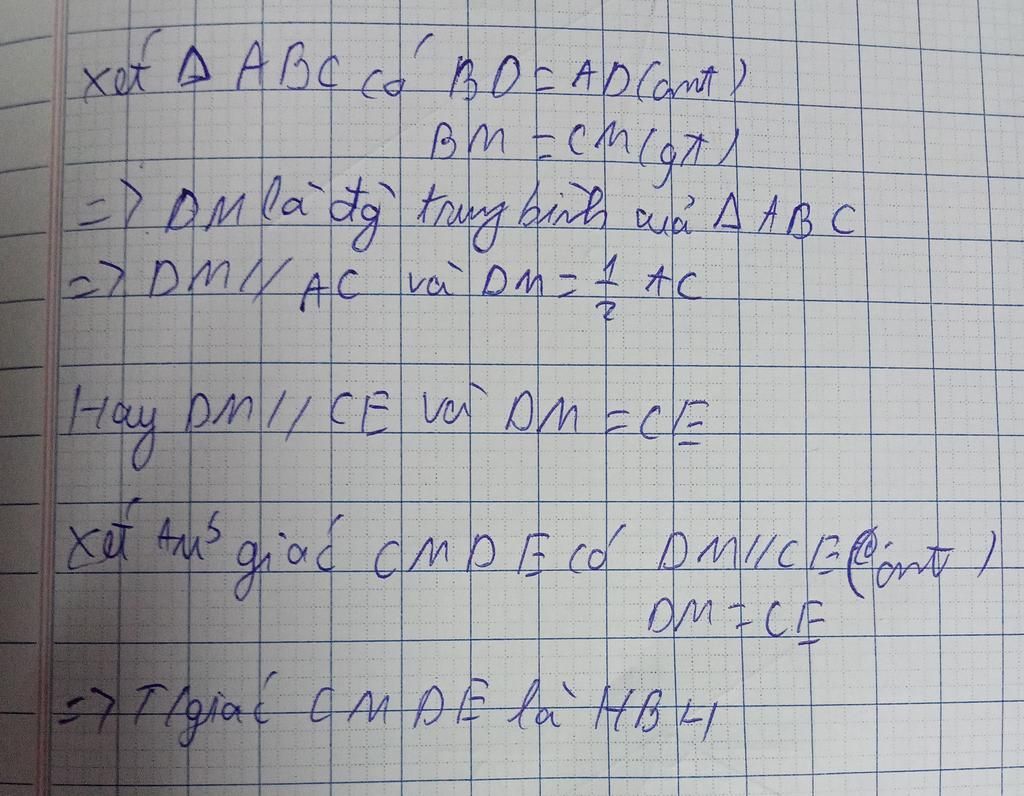 Xét Δ ABC có BD = AD (cmt)
BM = CM (gt)
=> DM là đg trung bình của Δ ABC
=> DM // AC và DM = 1/2 AC
Hay DM // CE và DM = CE
Xét giác CMDE có DM // CE (cmt)
DM = CE
=> T/giác CMDE là HBH